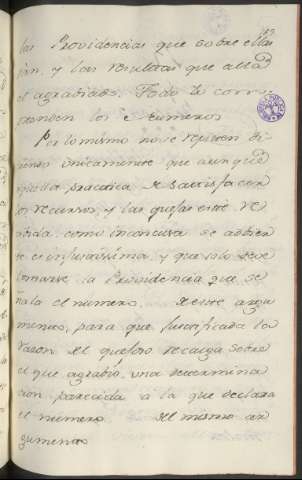 las Providencias que sobre ellas
dan, y las resultas que al
el agraviado. Todo lo corres
ponden los numeros
Por lo mismo no se repiten di
ciendo unicamente que aunque
aquella practica de satisfacer
los recursos, y las quejas este re
cibida como inconcusa se advier
te es injustissima, y que solo deve
tomarse la Providencia que se
ñala el numero de este argu
mento, para que justificada la
razon del quejoso recaiga sobre
el que agrabió, una determina
cion parecida a la que declara
el numero del mismo ar
gumento